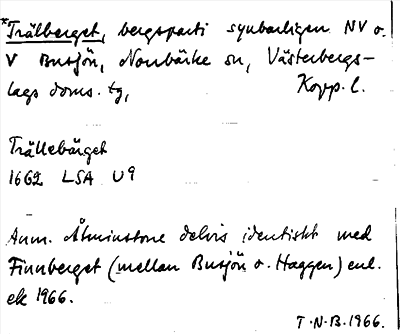 *Trälberget, bergsparti synbarligen NV o.
V Busjön, Norrbärke sn, Västerbergs-
lags doms. tg, Kopp. l.
Trällebärget
1662 LSA U9
Anm. Åtminstone delvis identiskt med
Finnberget (mellan Busjön o. Haggen) enl.
ek 1966.
T.N.B. 1966.